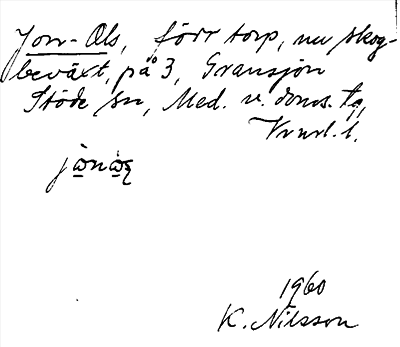 Jon-Ols, förr torp, nu skog-
beväxt, på 3, Gransjön
Stöde sn, Med. v. doms. tg,
Vrnrl. l.
jònòs
1960
K. Nilsson